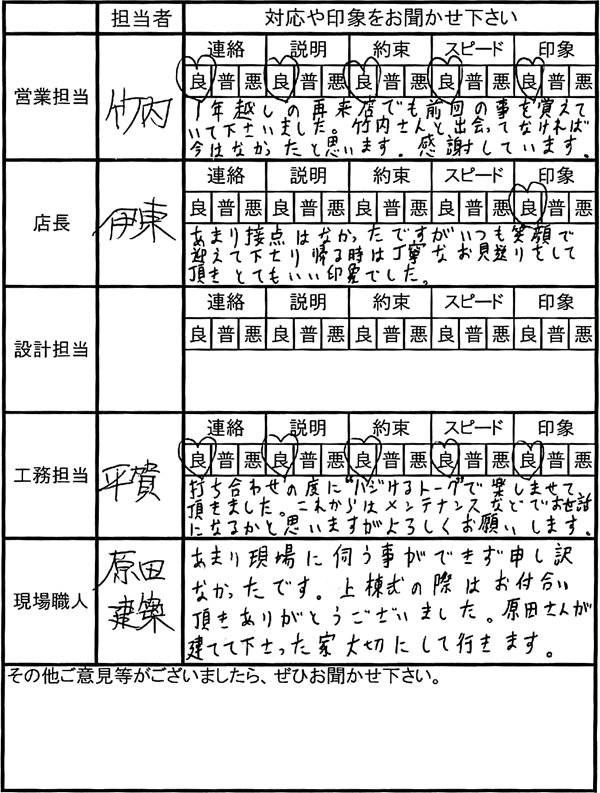 担当者 対応や印象をお聞かせ下さい
営業担当 竹内
連絡 説明 約束 スピード 印象
良 普 悪 良 普 悪 良 普 悪 良 普 悪 良 普 悪
1年越しの再来店でも前回の事を覚えて
いて下さいました。竹内さんと出会ってなければ
今はなかったと思います。感謝しています。
店長 伊東
連絡 説明 約束 スピード 印象
良 普 悪 良 普 悪 良 普 悪 良 普 悪 良 普 悪
あまり接点はなかったですがいつも笑顔で
迎えて下さり帰る時は丁寧なお見送りをして
頂きとてもいい印象でした。
設計担当
連絡 説明 約束 スピード 印象
良 普 悪 良 普 悪 良 普 悪 良 普 悪 良 普 悪
工務担当 平賀
連絡 説明 約束 スピード 印象
良 普 悪 良 普 悪 良 普 悪 良 普 悪 良 普 悪
打ち合わせの度に"ハジけるトーク"で楽しませて
頂きました。これからはメンテナンスなどでお世話
になるかと思いますがよろしくお願いします。
現場職人 原田
建築
あまり現場に伺う事ができず申し訳
なかったです。上棟式の際はお付合い
頂きありがとうございました。原田さんが
建てて下さった家大切にして行きます。
その他ご意見等がございましたら、ぜひお聞かせ下さい。